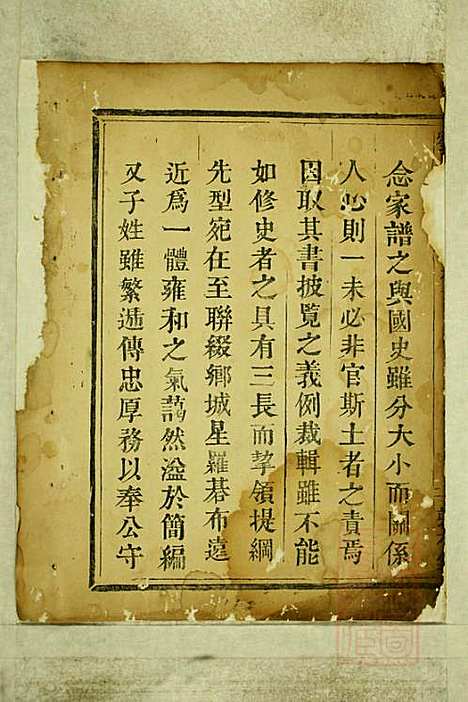 念家譜之與國史雖分大小而關係
人心則一未必非官斯土者之責焉
因取其書披覽之義例裁輯雖不能
如修史者之具有三長而挈領提綱
先型宛在至聯綴鄉城星羅碁布遠
近為一體雍和之氣藹然溢於簡編
又子姓雖繁遞傳忠厚務以奉公守